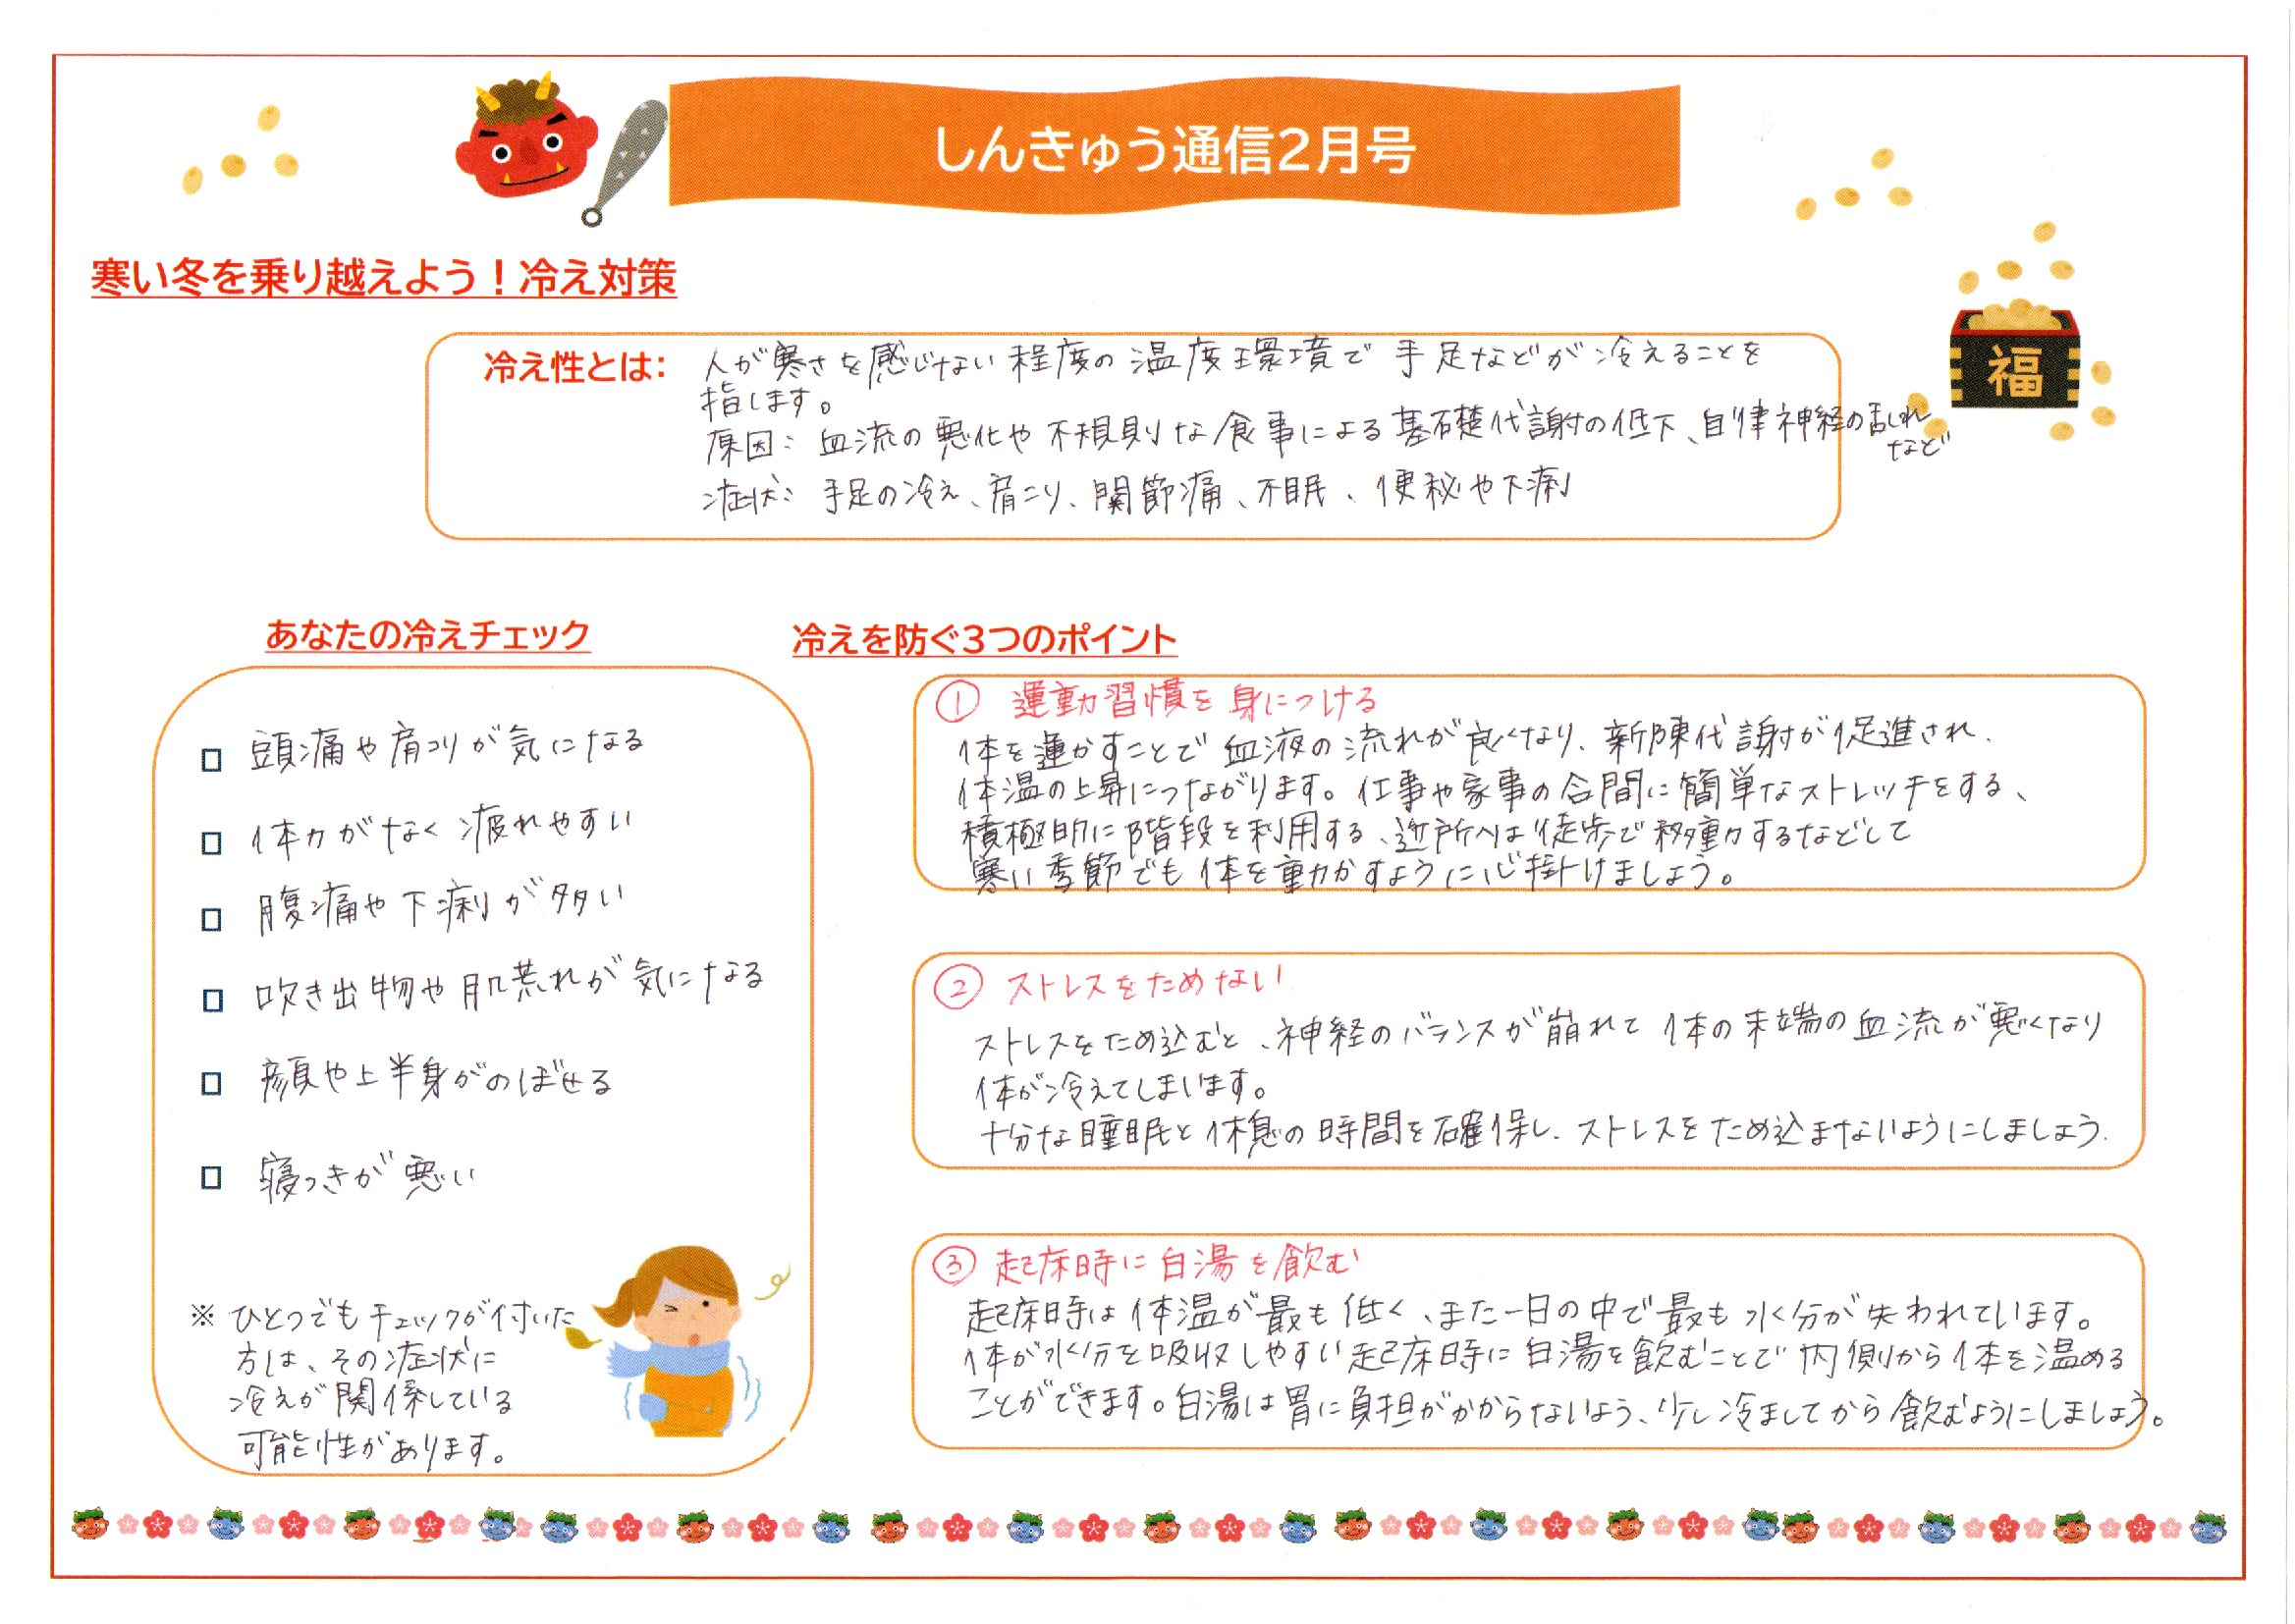 しんきゅう通信2月号
寒い冬を乗り越えよう！冷え対策
冷え性とは：
人が寒さを感じない程度の温度環境で手足などが冷えることを
指します。
原因：血流の悪化や不規則な食事による基礎代謝の低下、自律神経の乱れ
など
症状：手足の冷え、肩こり、関節痛、不眠、便秘や下痢
福
あなたの冷えチェック
□ 頭痛や肩コリが気になる
□ 体力がなく疲れやすい
□ 腹痛や下痢が多い
□ 吹き出物や肌荒れが気になる
□ 顔や上半身がのぼせる
□ 寝つきが悪い
※ ひとつでもチェックが付いた
方は、その症状に
冷えが関係している
可能性があります。
冷えを防ぐ3つのポイント
① 運動習慣を身につける
体を運かすことで血液の流れが良くなり、新陳代謝が促進され、
体温の上昇につながります。仕事や家事の合間に簡単なストレッチをする、
積極的に階段を利用する、近所へは徒歩で移動するなどして
寒い季節でも体を動かすように心掛けましょう。
② ストレスをためない
ストレスをため込むと、神経のバランスが崩れて体の末端の血流が悪くなり
体が冷えてしまいます。
十分な睡眠と休息の時間を確保し、ストレスをため込まないようにしましょう.
③ 起床時に白湯を飲む
起床時は体温が最も低く、また一日の中で最も水分が失われています。
体が水分を吸収しやすい起床時に白湯を飲むことで内側から体を温める
ことができます。白湯は胃に負担がかからないよう、少し冷ましてから飲むようにしましょう。